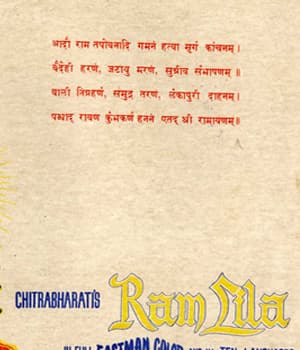 आदौ राम तपोवनादि गमनं हत्वा मृगं कांचनम्।
वैदेही हरणं, जटायु मरणं, सुग्रीव संभाषणम्॥
वाली निग्रहणं, समुद्र तरणं, लंकापुरी दाहनम्।
पश्चाद् रावण कुंभकर्ण हननं एतद् श्री रामायणम्॥
CHITRABHARATI'S Ram Lila
IN FULL EASTMAN COLOR